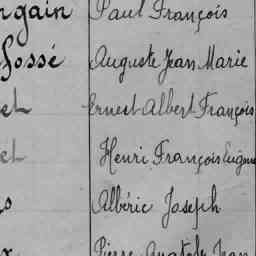 ngain Paul François
Fossé Auguste Jean Marie
et Ernest Albert François
et Henri François Eugène
s Albéric Joseph
Pierre Anatole Jean